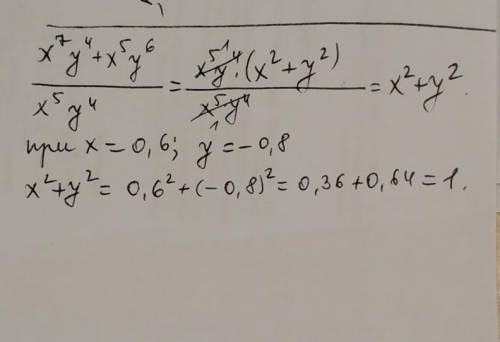 (x⁷y⁴+x⁵y⁶)/(x⁵y⁴) = (x⁵y⁴·(x²+y²))/(x⁵y⁴) = x²+y².
при x = 0,6; y = -0,8
x²+y² = 0,6²+(-0,8)² = 0,36+0,64 = 1.